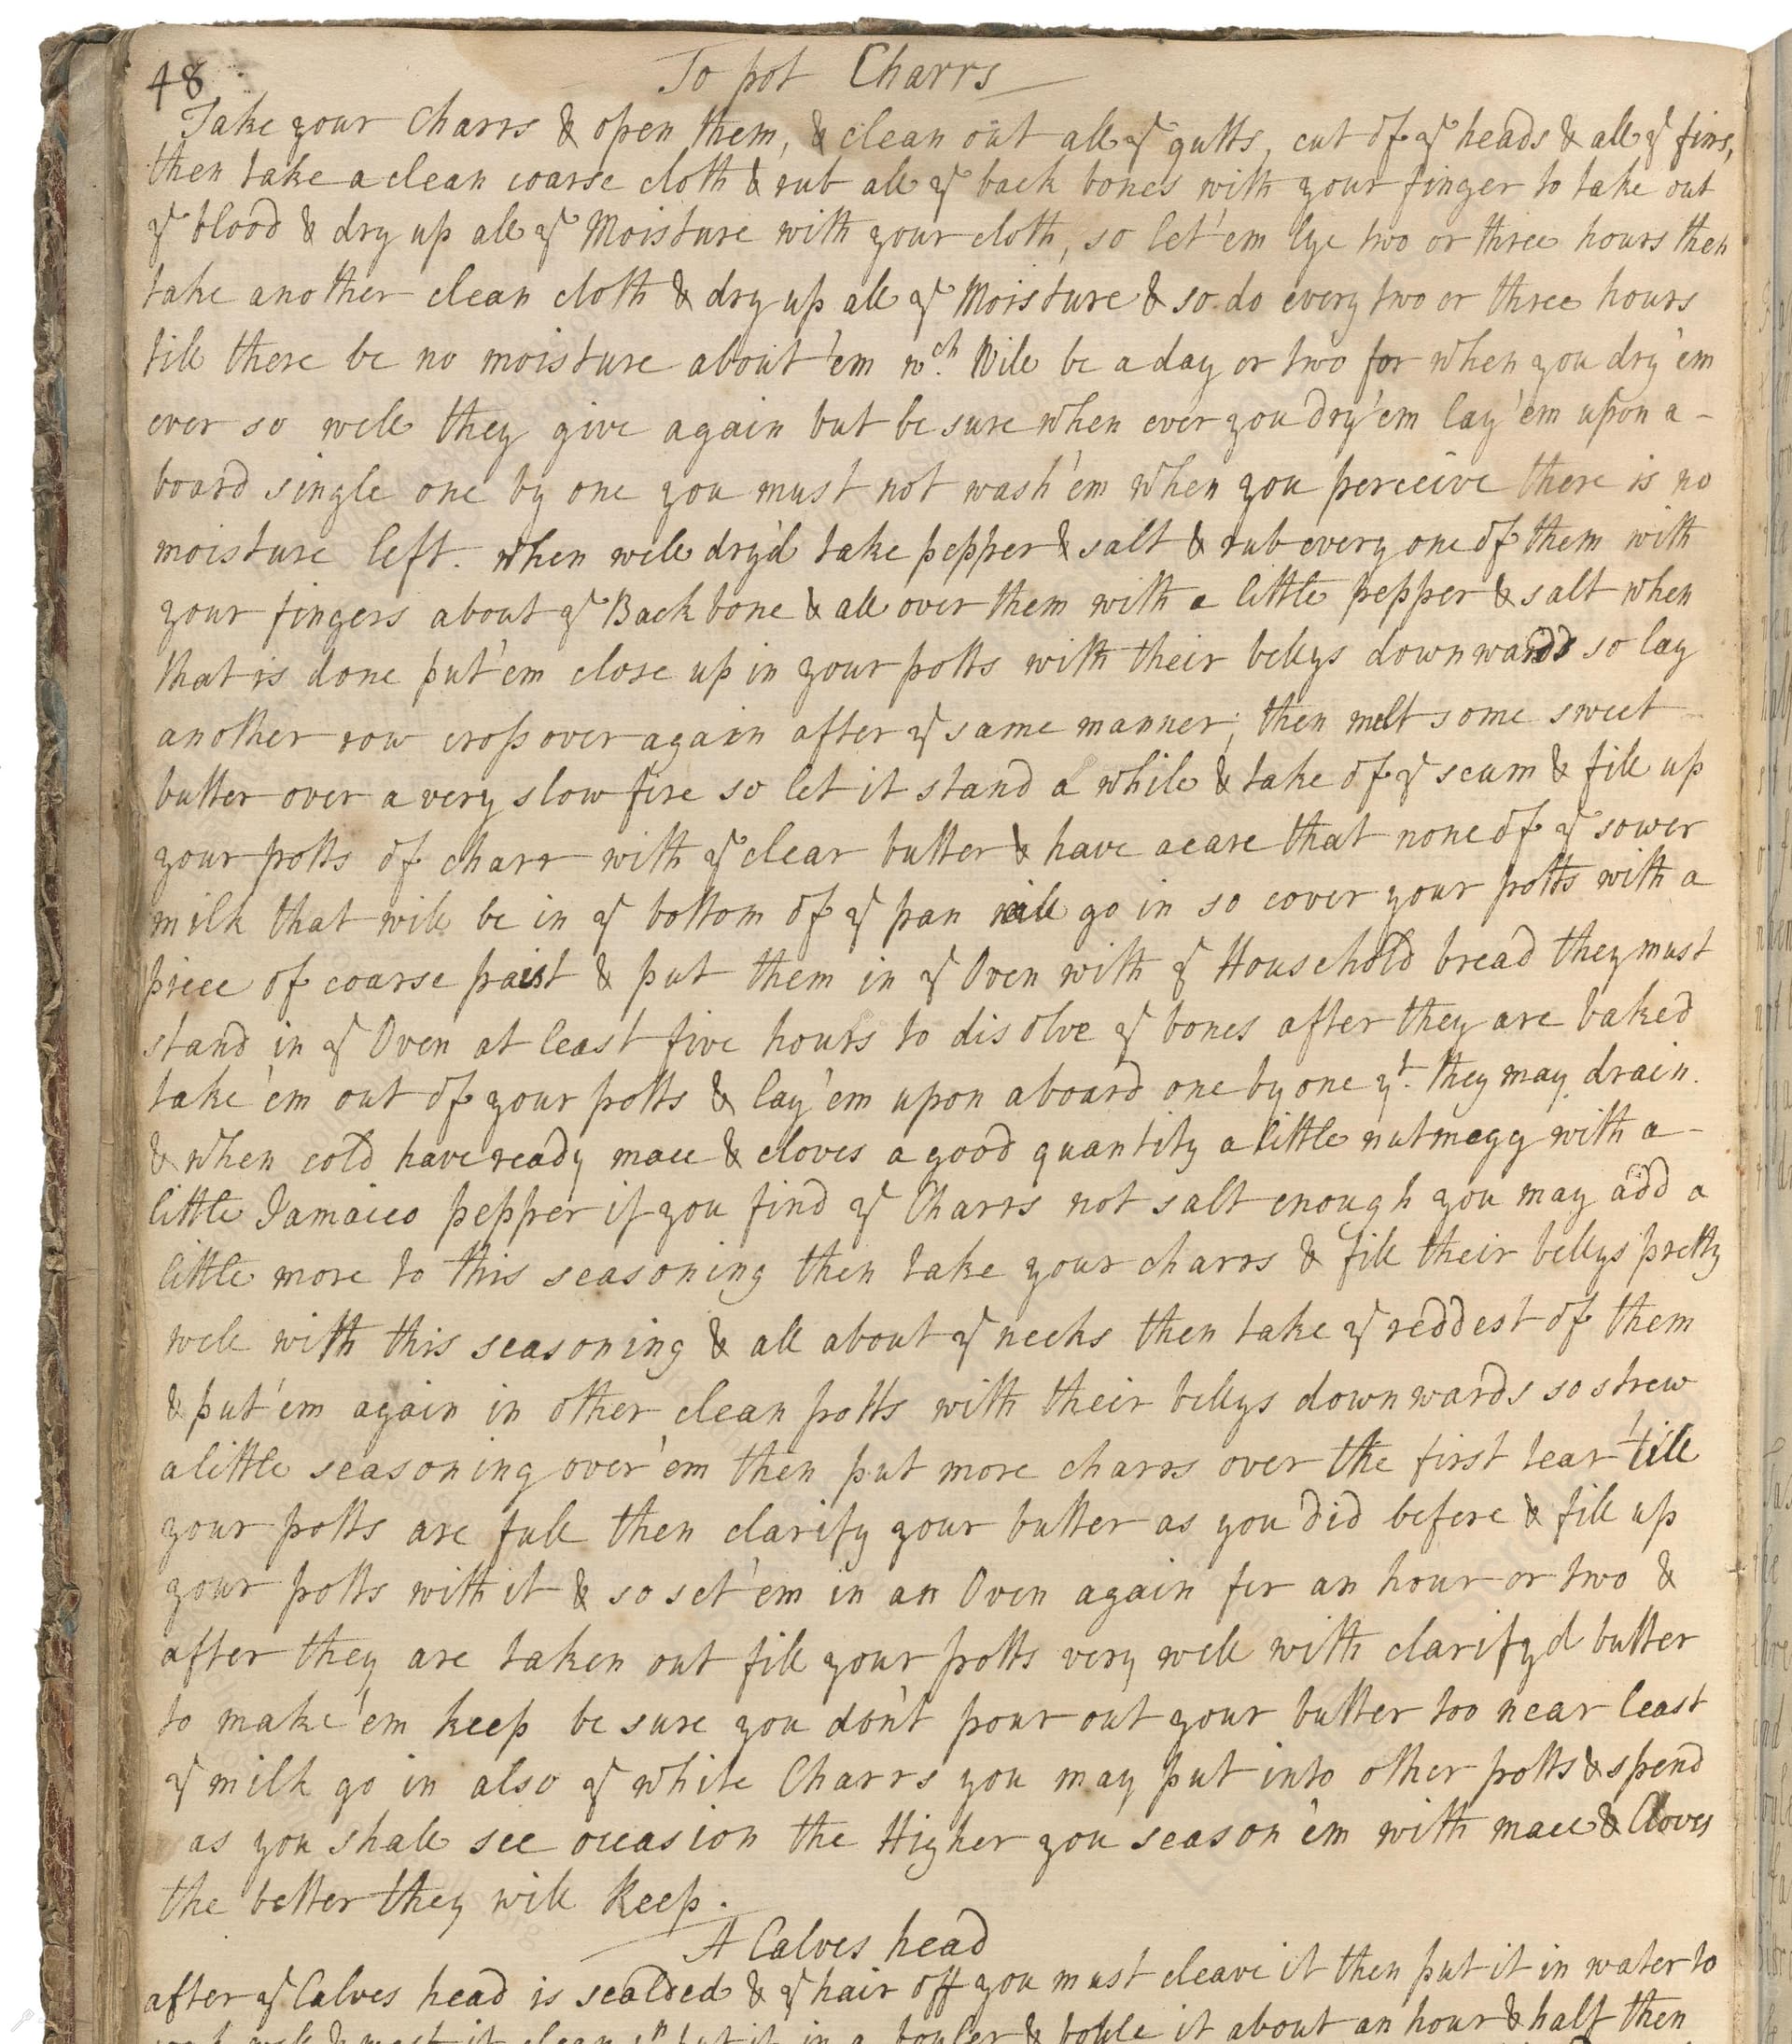 48
To pot Charrs
Take your Charrs & open them, & clean out all ye gutts, cut of ye heads & all ye fins,
then take a clean coarse cloth & rub all ye back bones with your finger to take out
ye blood & dry up all ye Moisture with your cloth, so let'em lye two or three hours then
take another clean cloth & dry up all ye Moisture & so do every two or three hours
till there be no moisture about'em wch. Will be a day or two for when you dry'em
ever so well they give again but be sure when ever you dry'em lay'em upon a -
board single one by one you must not wash'em when you perceive there is no
moisture left. when well dry'd take pepper & salt & rub every one of them with
your fingers about ye Back bone & all over them with a little pepper & salt when
that is done put'em close up in your potts with their bellys downwards so lay
another row cross over again after ye same manner; then melt some sweet
butter over a very slow fire so let it stand a while & take of ye scum & fill up
your potts of charr with ye clear butter & have a care that none of ye sower
milk that will be in ye bottom of ye pan will go in so cover your potts with a
piece of coarse paist & put them in ye Oven with ye Household bread they must
stand in ye Oven at least five hours to disolve ye bones after they are baked
take'em out of your potts & lay'em upon a board one by one yt. they may drain.
& when cold have ready mace & cloves a good quantity a little nutmegg with a -
little Jamaico pepper if you find ye Charrs not salt enough you may add a
little more to this seasoning then take your charrs & fill their bellys pretty
well with this seasoning & all about ye necks then take ye reddest of them
& put'em again in other clean potts with their bellys downwards so strew
a little seasoning over'em then put more charrs over the first tear 'till
your potts are full then clarify your butter as you did before & fill up
your potts with it & so set'em in an Oven again for an hour or two &
after they are taken out fill your potts very well with clarify'd butter
to make'em keep be sure you don't pour out your butter too near least
ye milk go in also ye white Charrs you may put into other potts & spend
as you shall see occasion the Higher you season'em with mace & Cloves
the better they will keep.
A Calves head
after ye Calves head is scalded & ye hair off you must cleave it then put it in water to
it in a & boyle it about an hour & half then